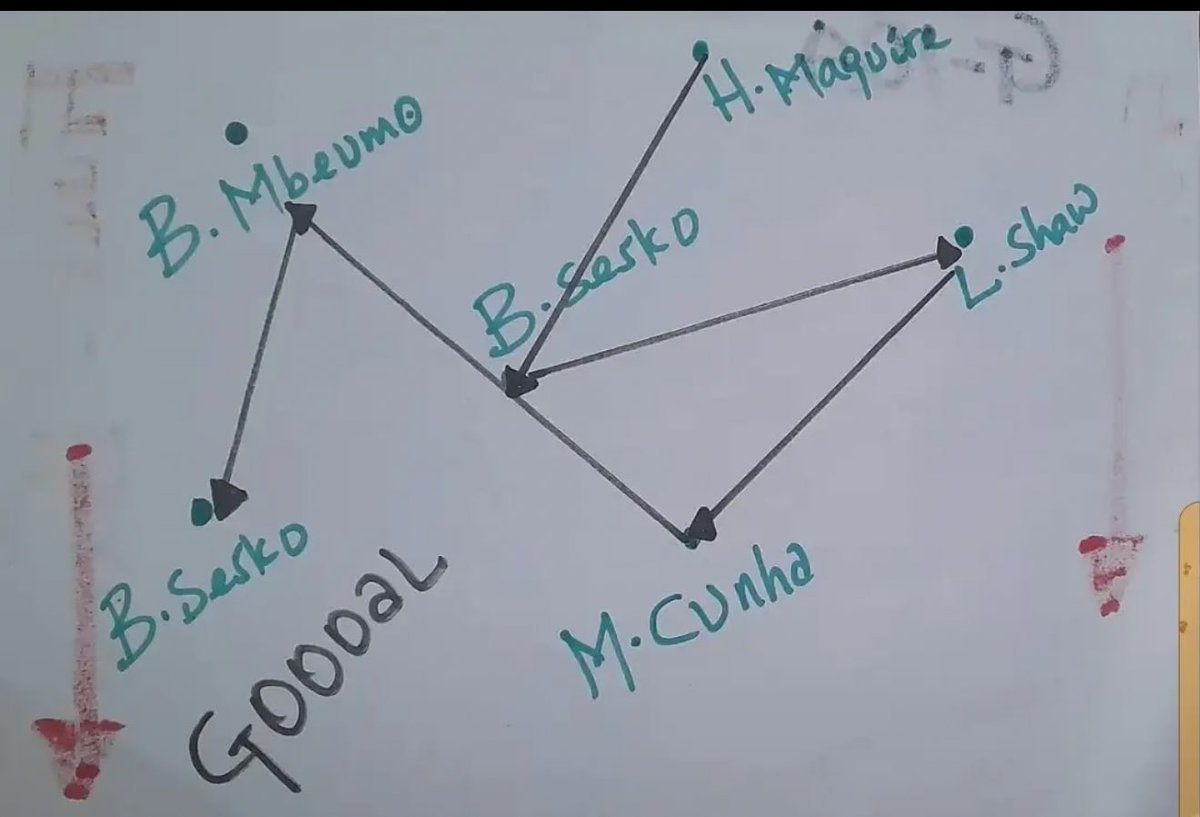 H. Maguire
B. Mbeumo
B. Sesko
L. Shaw
B. Sesko
M. Cunha
GOOOaL